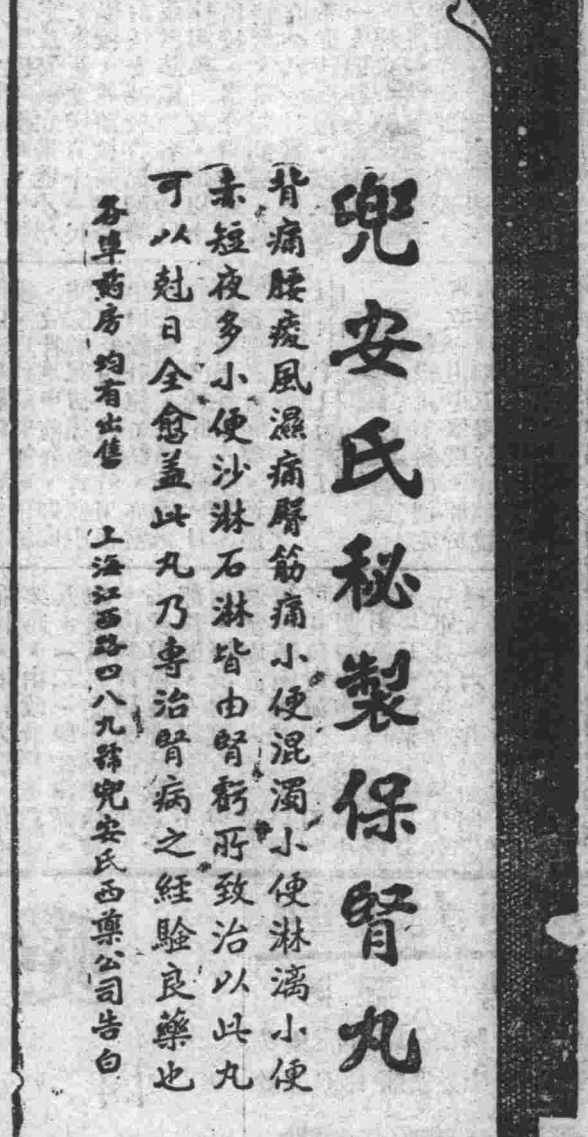 兜安氏秘製保腎丸
背痛腰痠風濕痛臀筋痛小便混濁小便淋漓小便
赤短夜多小便沙淋石淋皆由腎虧所致治以此丸
可以尅日全愈盖此丸乃專治腎病之經驗良藥也
各埠药房均有出售 上海江西路四八九號兜安氏西藥公司告白